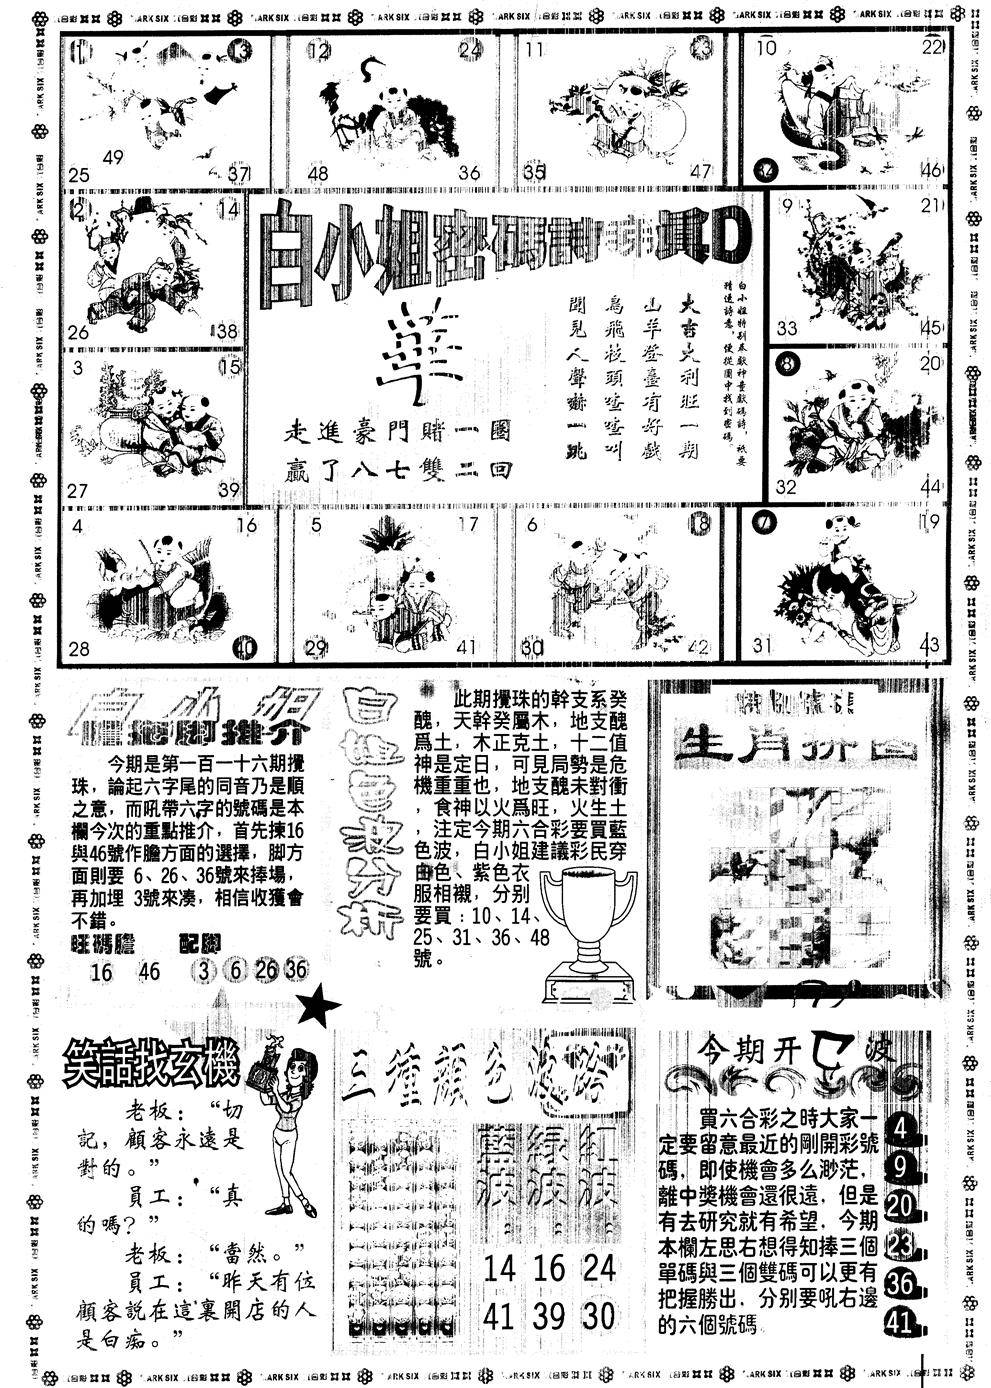 1 13
25 49 37
12 24
48 36
11 23
35 47
10 22
34 46
2 14
26 38
9 21
33 45
3 15
27 39
8 20
32 44
4 16
28 40
5 17
29 41
6 18
30 42
7 19
31 43
白小姐密碼詩
白小姐特別奉獻神童獻碼詩，祇要
猜透詩意，便從圖中找到密碼
大吉大利旺一期
山羊登臺有好戲
鳥飛枝頭喳喳叫
聞見人聲嚇一跳
走進豪門賭一圈
贏了八七雙二回
白小姐
推介
今期是第一百一十六期攪
珠，論起六字尾的同音乃是順
之意，而吼帶六字的號碼是本
欄今次的重點推介，首先揀16
與46號作膽方面的選擇，脚方
面則要 6、26、36號來捧場，
再加埋 3號來凑，相信收獲會
不錯。
旺碼膽 配脚
16 46 3 6 26 36
此期攪珠的幹支系癸
醜，天幹癸屬木，地支醜
爲土，木正克土，十二值
神是定日，可見局勢是危
機重重也，地支醜未對衝
，食神以火爲旺，火生土
，注定今期六合彩要買藍
色波，白小姐建議彩民穿
白色、紫色衣
服相襯，分别
要買：10、14、
25、31、36、48
號。
生肖拼圖
笑話找玄機
老板：“切
記，顧客永遠是
對的。”
員工：“真
的嗎？”
老板：“當然。”
員工：“昨天有位
顧客説在這裏開店的人
是白痴。”
三種顏色
藍波： 綠波： 紅波：
14 16 24
41 39 30
今期开 波
買六合彩之時大家一
定要留意最近的剛開彩號
碼，即使機會多么渺茫，
離中獎機會還很遠，但是
有去研究就有希望，今期
本欄左思右想得知捧三個
單碼與三個雙碼可以更有
把握勝出，分别要吼右邊
的六個號碼
4
9
20
23
36
41